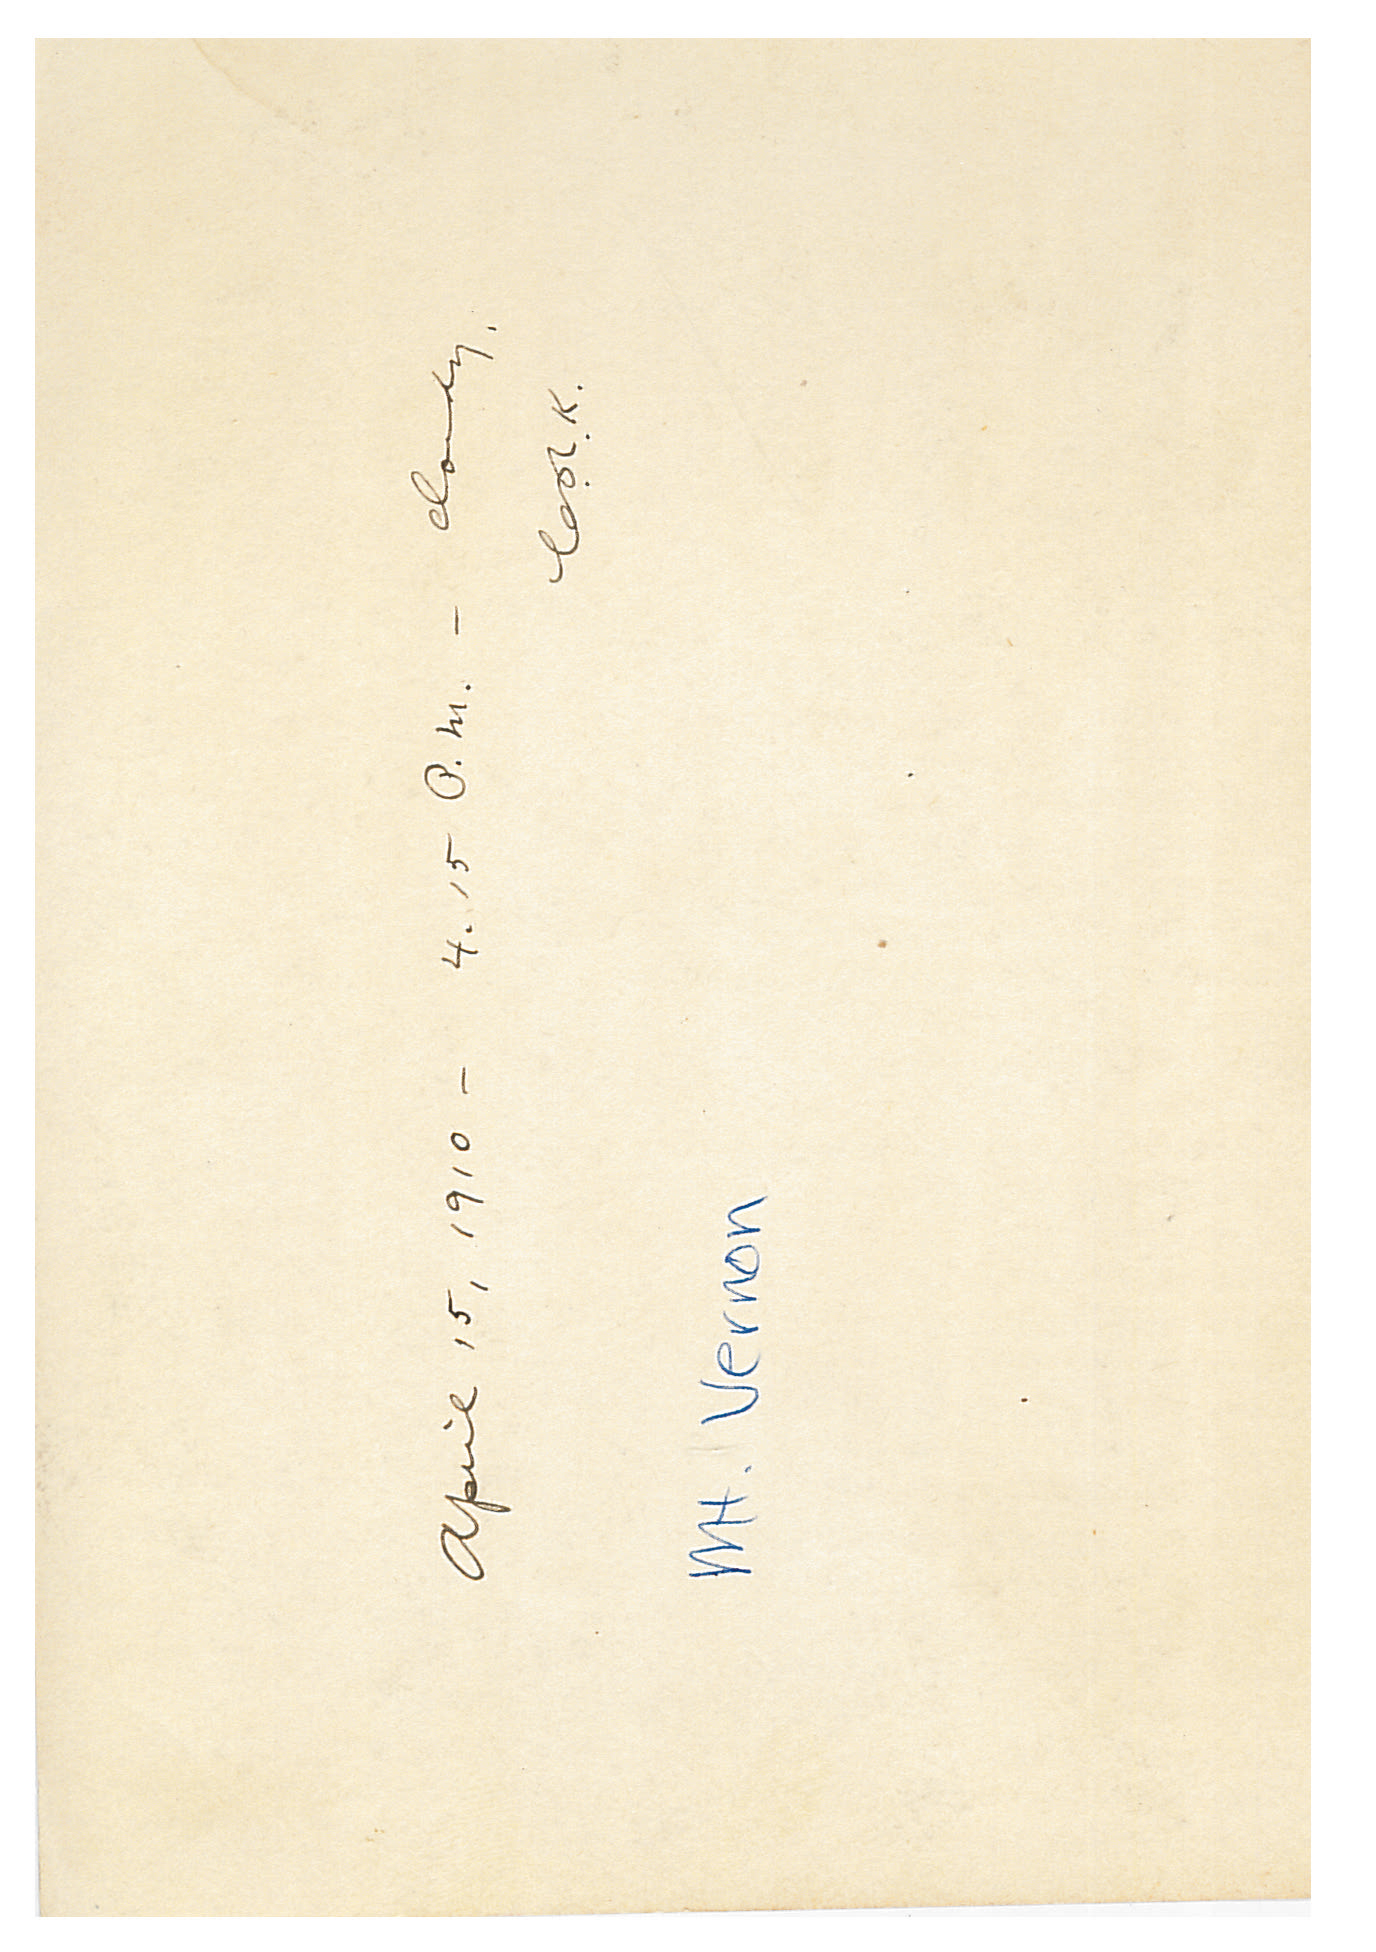 April 15, 1910 - 4.15 P.M. - cloudy.
Mt. Vernon